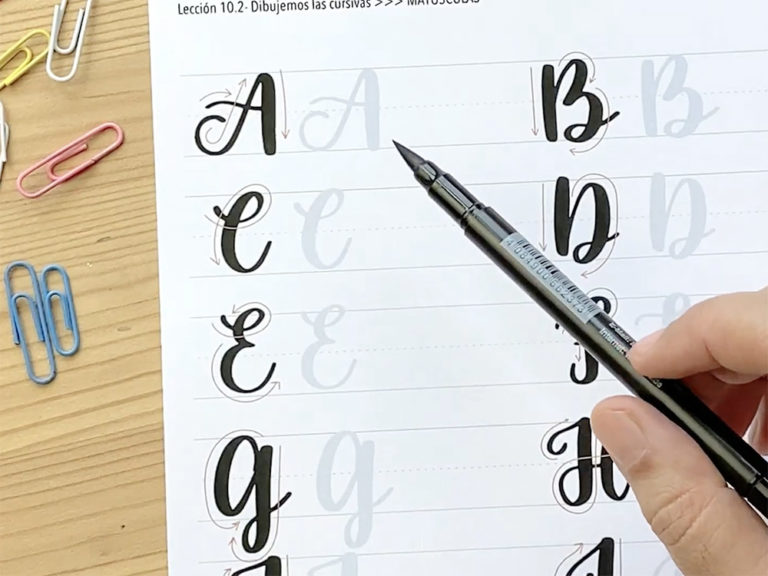 Lección 10.2- Dibujemos las cursivas >>> MAYÚSCULAS
A A B B
C C D D
E E
G G H